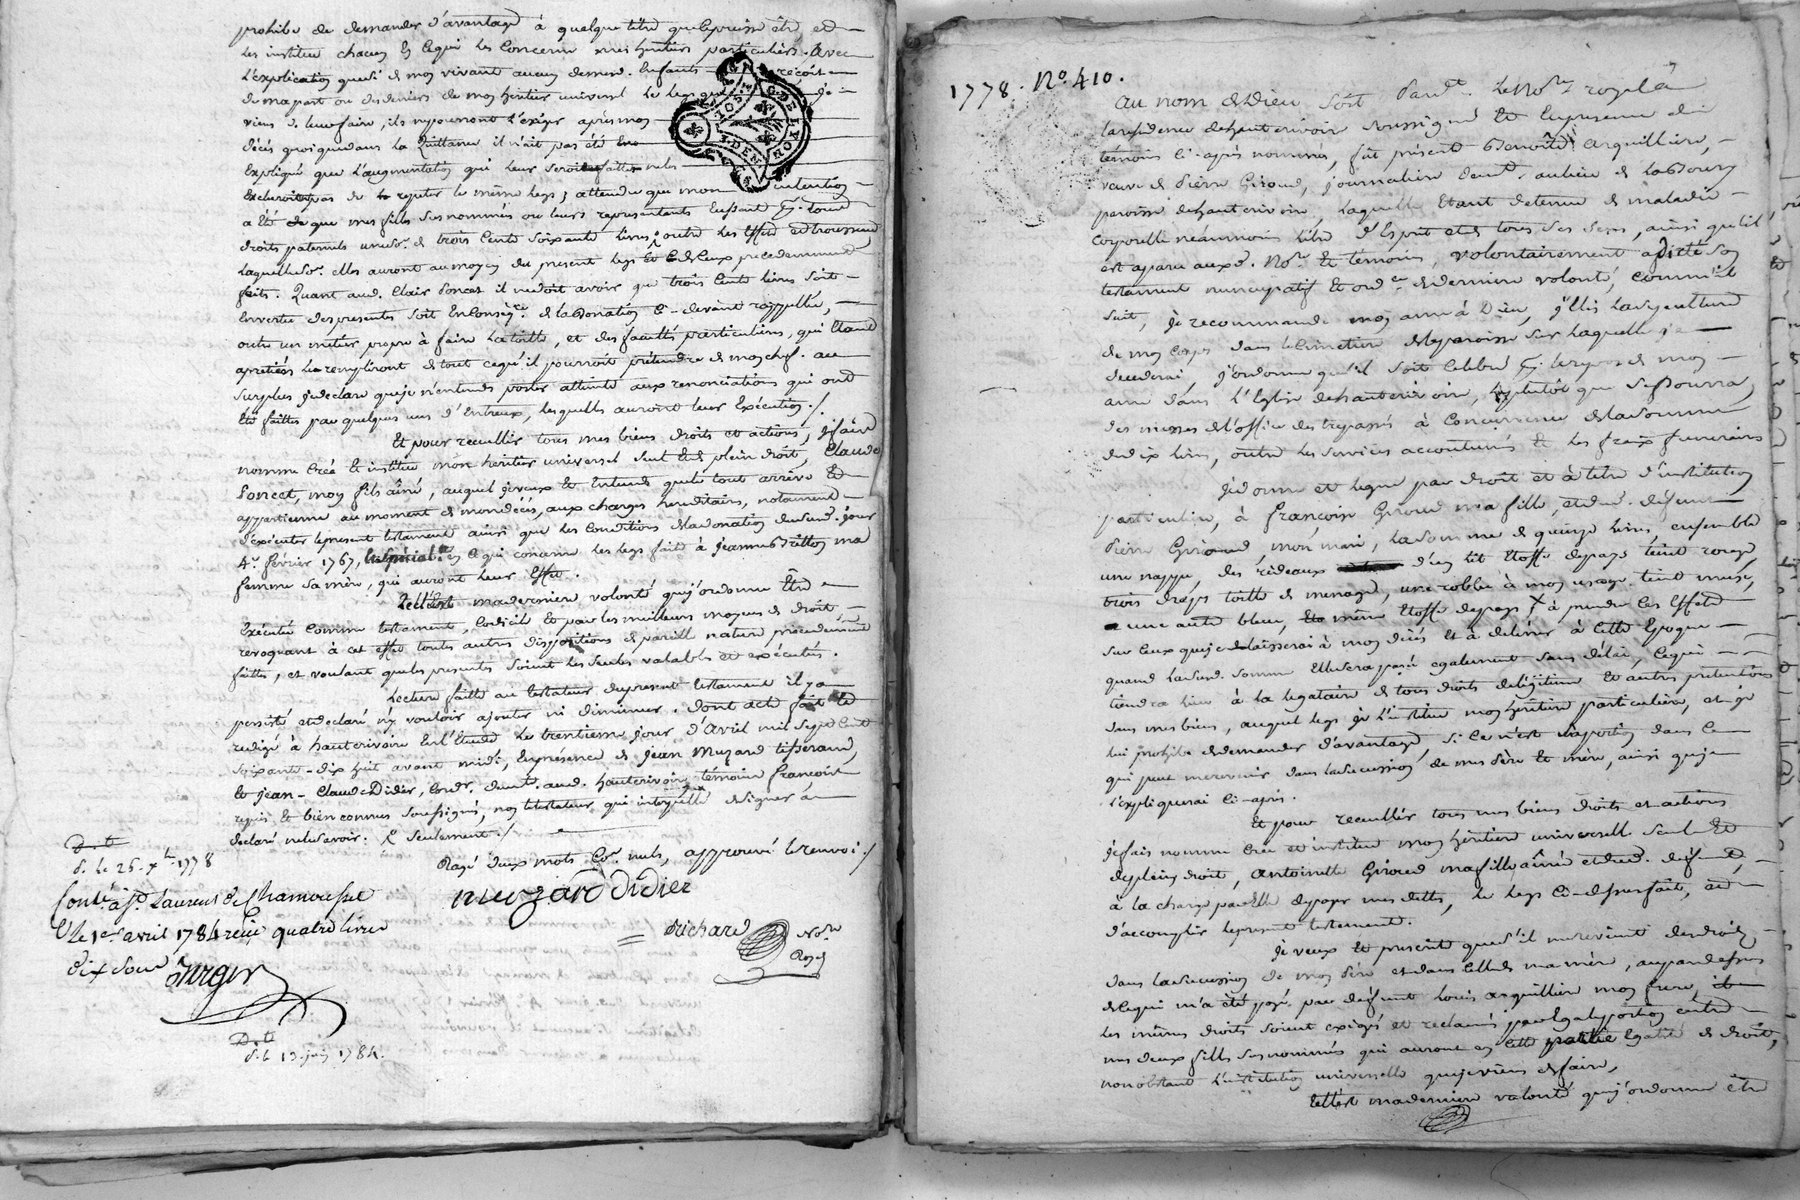 prohibe de demander d'avantage à quelque titre que ce puisse être et
les institue chacun en ce qui les concerne mes héritiers particuliers. Avec
l'explication que si de mon vivant aucun desmeme. Enfants reçoit
de ma part ou des deniers de mon héritier universel le legs que je
viens de leur faire, ils ne pourront l'exiger après mon
décès quoique dans la Quittance il n'ait pas été
Expliqué que l'augmentation qui leur seroit faitte
de le même legs; attendu que mon intention
a été que mes filles susnommés ou leurs représentants Eussent pr. tous
droits paternels une so. de trois Cents soixante livres; outre les Effets et trousseau
laquelle so. elles auront au moyen du present legs et de Ceux precedemment
faits. Quant aud. Clair Poncet il ne doit avoir que trois Cents livres soit
En vertu des presentes soit En Conséqce. de la Donation Ci-devant rappellée,
outre un métier propre à faire la toille, et des facultés particulieres, qui Etant
apretiées le rempliront de tout ce qu'il pourroit prétendre de mon chef. au
surplus je declare que je n'entends porter atteinte aux renonciations qui ont
Eté faittes par quelques uns d'Entreux, lesquelles auront leur Exécution./.
Et pour recueillir tous mes biens droits et actions, je fais
nomme Créé et institue mon heritier universel seul et de plein droit, Claude
Poncet, mon fils aîné, auquel je veux et Entends que le tout arrive et
appartienne au moment de mon décès, aux charges hereditaires, notament
d'exécuter le present testament ainsi que les Conditions de la donation dud. jour
4e. février 1767, en ce qui concerne les legs faits à Jeanne Brillon ma
femme sa mère, qui auront leur Effet.
Telle est ma derniere volonté que j'ordonne Être
Exécutée Comme testament, Codicile et par les meilleurs moyens de droit
revoquant à cet effet toutes autres dispositions de pareille nature précédemment
faittes, et voulant que les presentes soient les seules valables et exécutées.
Lecture faitte au testateur du present testament il y a
persisté et declaré n'y vouloir ajouter ni diminuer. Dont acte fait et
redigé à hauterivoire En l'Etude le trentieme jour d'Avril mil sept Cent
soixante-dix huit avant midi, En présence de Jean Muzard tisserand,
Et Jean-Claude Didier, Cordr. demt. aud. hauterivoire témoins françois
requis et bien connus soussignés, non le testateur qui interpellé de signer a
declaré ne le savoir. seulement./
Rayé deux mots Co. nuls, approuvé le renvoi./
muzard didier
Richard Nore
Royal
D. t.
d. le 26. xbre 1778
Conté. à St. Laurent de Chamousset
Le 1er avril 1784 reçu quatre livres
dix sous
Verger
D. t.
d. le 13. juin 1784.
1778. No. 410.
Au nom de Dieu soit Pardt. le Nore. royal à
la residence de hauterivoire soussigné Et En presence des
témoins Ci-après nommés, fut présente Benoitte arquilliere,
veuve de Pierre Giroud, journaliere demte. au lieu de
paroisse de hauterivoire, laquelle Etant detenue de maladie
corporelle néanmoins libre d'Esprit et de tous ses sens, ainsi qu'il
est aparu auxd. Nore. Et témoins, volontairement a dicté son
testament nuncupatif Et ordce. de derniere volonté, comme s'ensuit
suit, je recommande mon ame à Dieu, j'Elis la sepulture
de mon corps dans le cimetiere de la paroisse sur laquelle je
decederai, j'ordonne qu'il soit celebré pr. le repos de mon
ame dans l'Eglise de hauterivoire, le plutôt que se pourra,
des messes de l'office des trepassés à concurrence de la somme
de dix livres, outre les services accoutumés et les fraix funeraires
Je donne et legue par droit et à titre d'institution
particuliere, à françoise Giroud ma fille, et dud. defunt
Pierre Giroud, mon mari, la somme de quinze livres ensemble
une nappe, des rideaux d'un lit Etoffe de pays teint rouge,
trois draps toille de menage, une robbe à mon usage teint muse,
une autre bleue, même Etoffe de pays à prendre ces Effets
sur Ceux que je delaisserai à mon décès et à délivrer à cette Epoque
quand lad. somme Elle sera payée egalement sans délai, ce qui
tiendra lieu à la legataire de tous droits de légitime Et autres prétentions
dans mes biens, auquel legs je l'institue mon héritiere particuliere, et je
lui prohibe de demander d'avantage, si ce n'est sa portion dans ce
qui peut me revenir dans la succession de mes Père Et mère, ainsi que je
l'expliquerai ci-après.
Et pour recueillir tous mes biens droits et actions
je fais nomme Créé et institue mon héritiere universelle seule Et
de plein droit, Antoinette Giroud ma fille aînée et dud. défunt,
à la charge par Elle de payer mes dettes, le legs Ci-dessus fait, et
d'accomplir le present testament.
Je veux Et prescrit que s'il me revient des droits
dans la succession de mon Père et dans celle de ma mère, au par dessus
de ce qui m'a été payé par defunt Louis arquilliere mon frere,
les mêmes droits soient exigés et reclamés par Egale portion entre
mes deux filles susnommées qui auront en cette partie Egalité de droits,
nonobstant l'institution universelle que je viens de faire,
Telle est ma derniere volonté que j'ordonne être